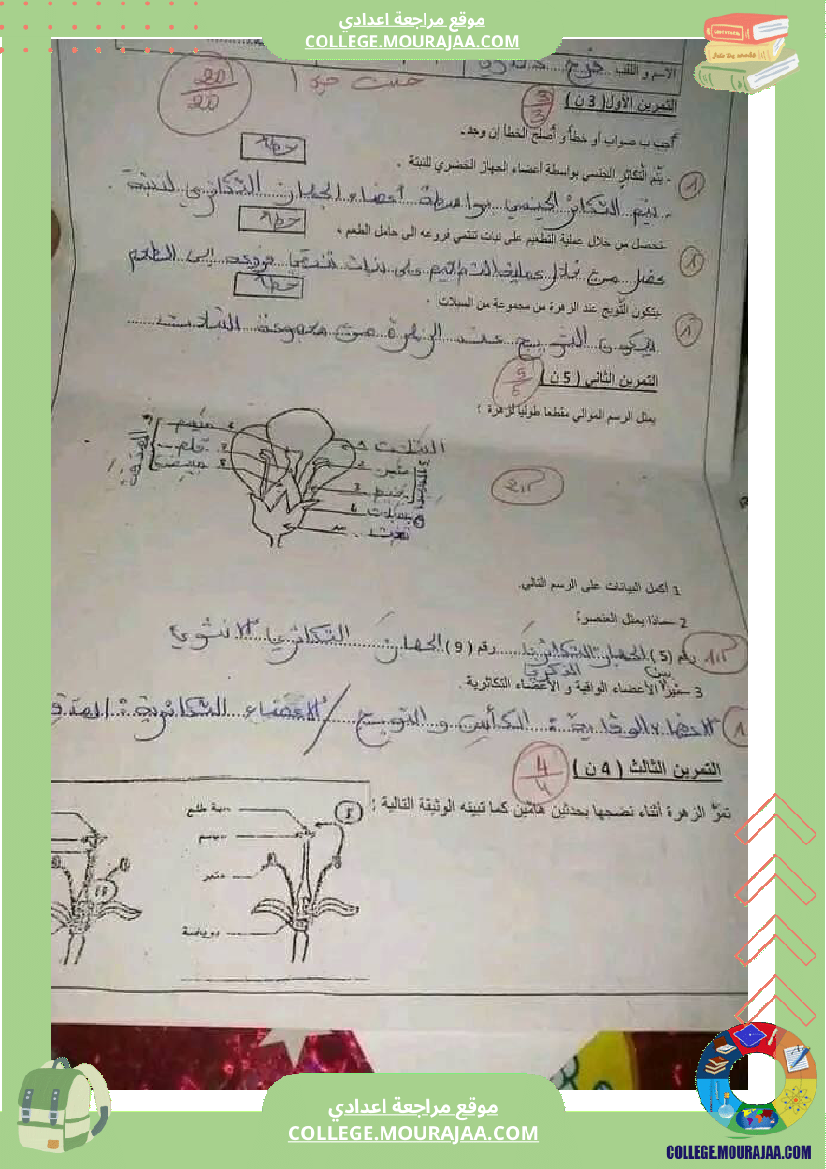 موقع مراجعة اعدادي
COLLEGE.MOURAJAA.COM
الاسم و اللقب
20/20
التمرين الأول ( 3 ن )
3/3
أجب ب صواب أو خطأ و أصلح الخطأ إن وجد.
خطأ
- يتم التكاثر الجنسي بواسطة أعضاء الجهاز الخضري للنبتة .
1
يتم التكاثر الجنسي بواسطة أعضاء الجهاز التكاثري للنبتة .
خطأ
نتحصل من خلال عملية التطعيم على نبات تنتمي فروعه الى حامل الطعم .
1
نحصل من خلال عملية التطعيم على نبات تنتمي فروعه إلى الطعم
خطأ
يتكون التويج عند الزهرة من مجموعة من السبلات .
1
يتكون التويج عند الزهرة من مجموعة البتلات
التمرين الثاني ( 5 ن )
5/5
يمثل الرسم الموالي مقطعا طوليا لزهرة :
ميسم
قلم
مبيض
مئبر
سبلات
1 أكمل البيانات على الرسم التالي.
2 - ماذا يمثل العنصر:
رقم (5) الجهاز التكاثري رقم ( 9 ) الجهاز التكاثري الأنثوي
الذكري
3 - ميز بين الأعضاء الواقية و الأعضاء التكاثرية .
الأعضاء الواقية : الكأس و التويج / الأعضاء التكاثرية :
التمرين الثالث ( 4 ن )
4/4
تمر الزهرة أثناء نضجها بحدثين هامين كما تبينه الوثيقة التالية :
حبة طلع
ميسم
مئبر
بويضة
موقع مراجعة اعدادي
COLLEGE.MOURAJAA.COM
COLLEGE.MOURAJAA.COM